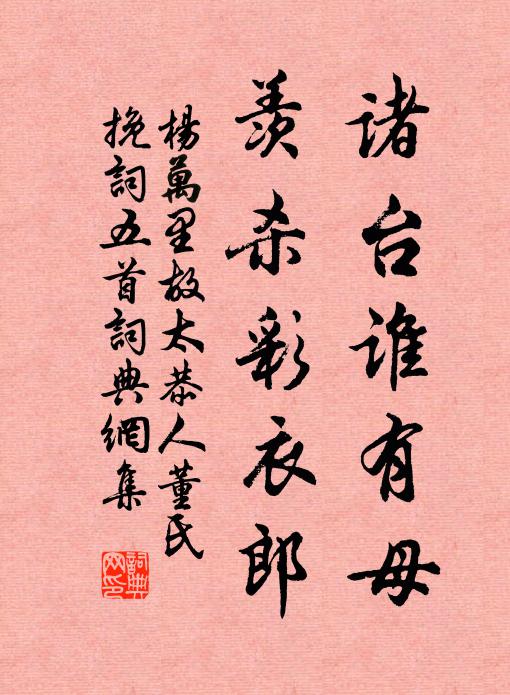 諸台誰有母
羨杀彩衣郎
楊萬里故太恭人董氏
挽詞五首詞典網集
詞典网印